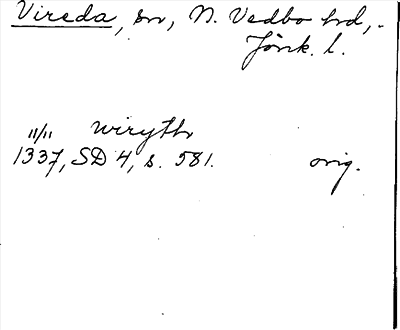 Vireda, sn, N. Vedbo hd,
Jönk. l.
11/11 wiryth
1337, SD 4, s. 581. orig.